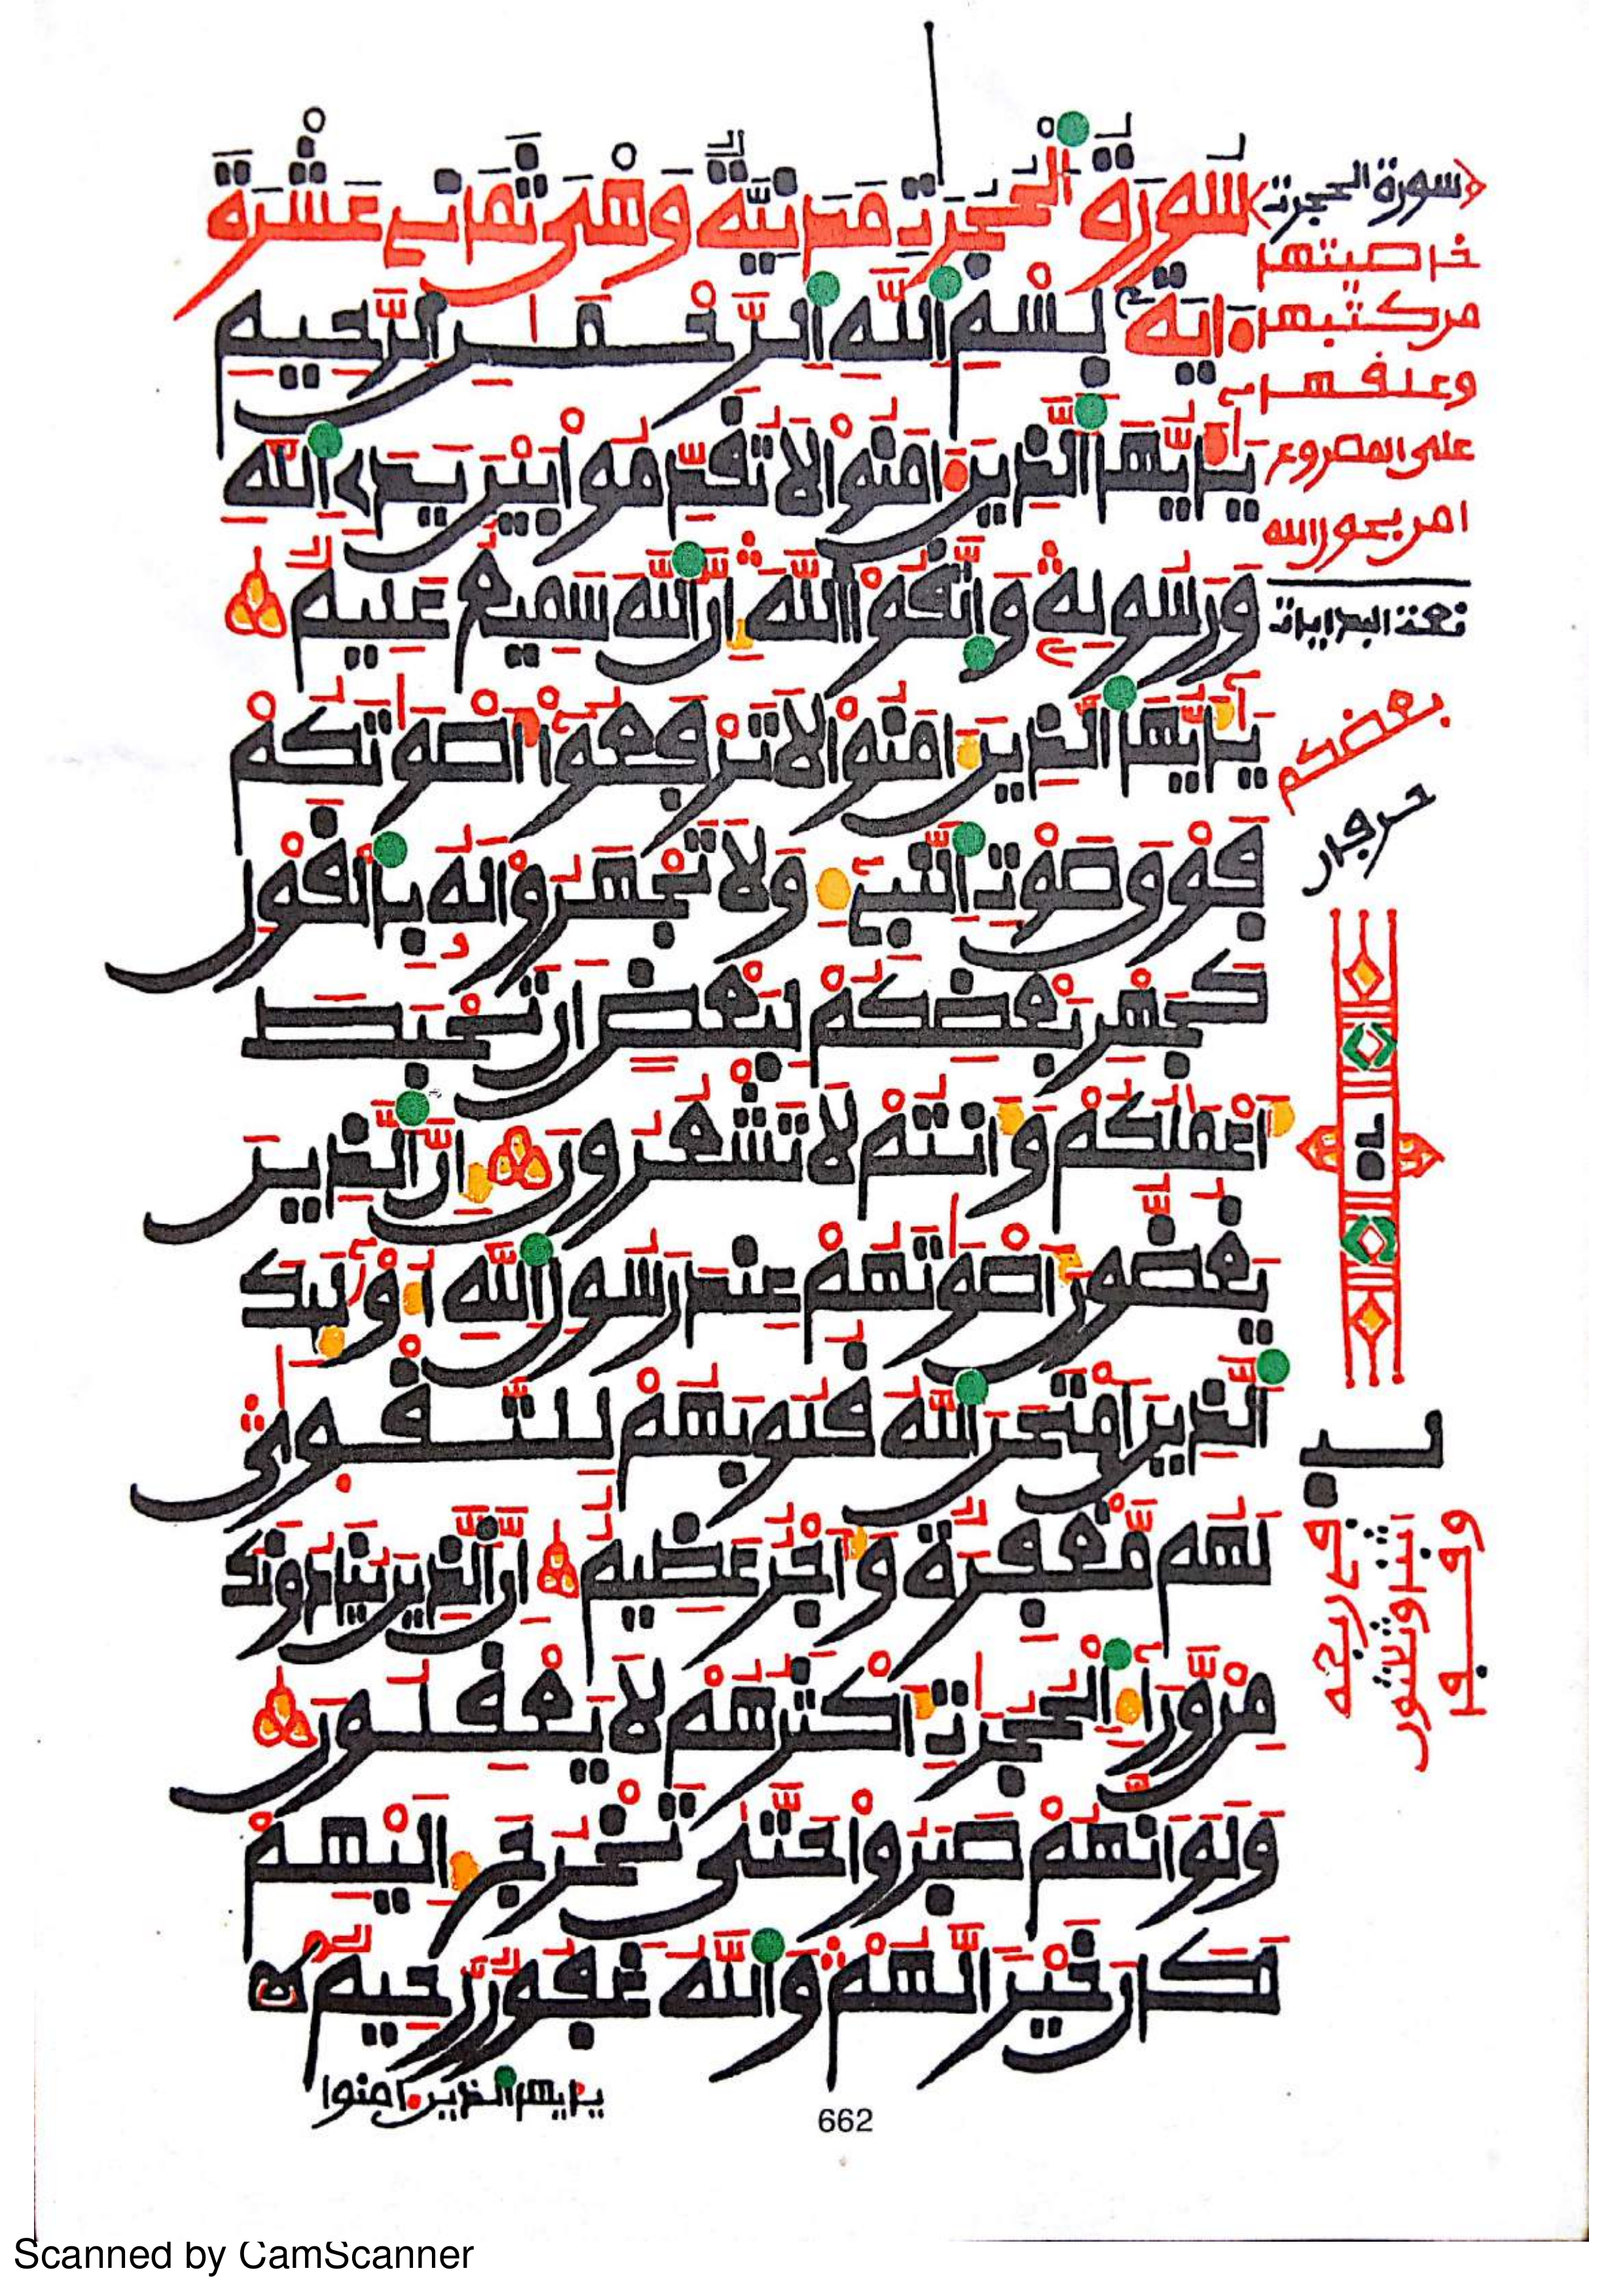 سُورَةُ الْحُجُرَٰتِ مَدَنِيَّةٌ وَهْيَ ثَمَانِيَ عَشْرَةَ
ءَايَةً بِسْمِ اللَّهِ الرَّحْمَٰنِ الرَّحِيمِ
يَٰأَيُّهَا الَّذِينَ ءَامَنُوا لَا تُقَدِّمُوا بَيْنَ يَدَيِ اللَّهِ
وَرَسُولِهِ وَاتَّقُوا اللَّهَ إِنَّ اللَّهَ سَمِيعٌ عَلِيمٌ
يَٰأَيُّهَا الَّذِينَ ءَامَنُوا لَا تَرْفَعُوا أَصْوَٰتَكُمْ
فَوْقَ صَوْتِ النَّبِيءِ وَلَا تَجْهَرُوا لَهُ بِالْقَوْلِ
كَجَهْرِ بَعْضِكُمْ لِبَعْضٍ أَن تَحْبَطَ
أَعْمَٰلُكُمْ وَأَنتُمْ لَا تَشْعُرُونَ إِنَّ الَّذِينَ
يَغُضُّونَ أَصْوَٰتَهُمْ عِندَ رَسُولِ اللَّهِ أُوْلَٰئِكَ
الَّذِينَ امْتَحَنَ اللَّهُ قُلُوبَهُمْ لِلتَّقْوَىٰ
لَهُم مَّغْفِرَةٌ وَأَجْرٌ عَظِيمٌ إِنَّ الَّذِينَ يُنَادُونَكَ
مِنْ وَّرَاءِ الْحُجُرَٰتِ أَكْثَرُهُمْ لَا يَعْقِلُونَ
وَلَوْ أَنَّهُمْ صَبَرُوا حَتَّىٰ تَخْرُجَ إِلَيْهِمْ
لَكَانَ خَيْرًا لَّهُمْ وَاللَّهُ غَفُورٌ رَّحِيمٌ
يَٰأيها الذين ءامنوا
662
سورة الحجرت
على
الله
بعضكم
Scanned by CamScanner